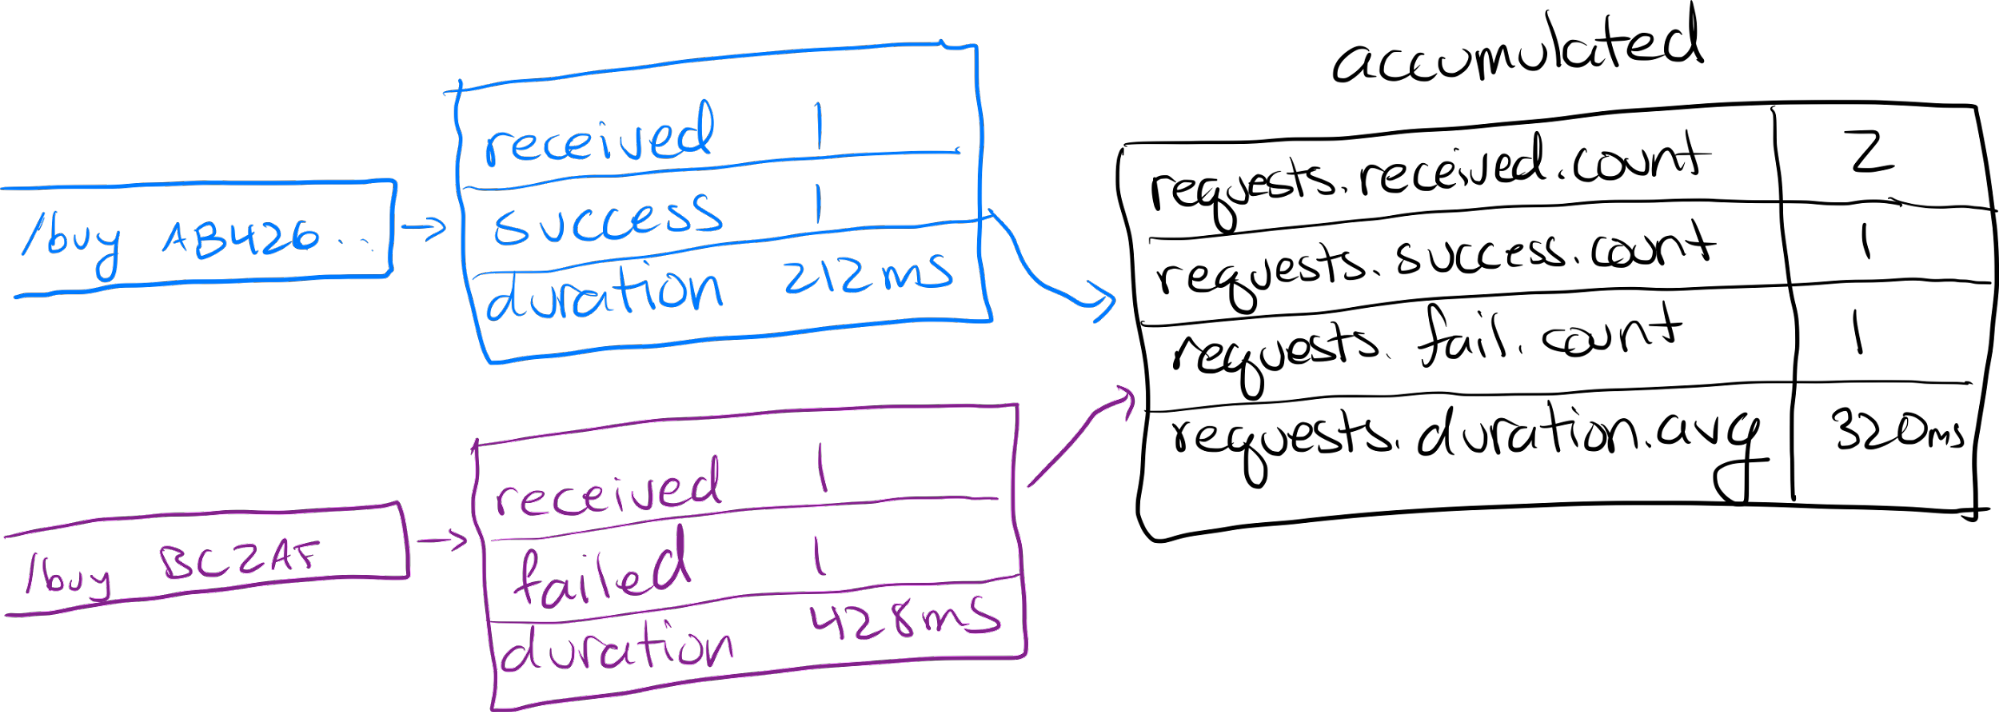 /buy AB426..
received 1
success 1
duration 212ms
/buy BC2AF
received 1
failed 1
duration 428ms
accumulated
requests.received.count 2
requests.success.count 1
requests.fail.count 1
requests.duration.avg 320ms